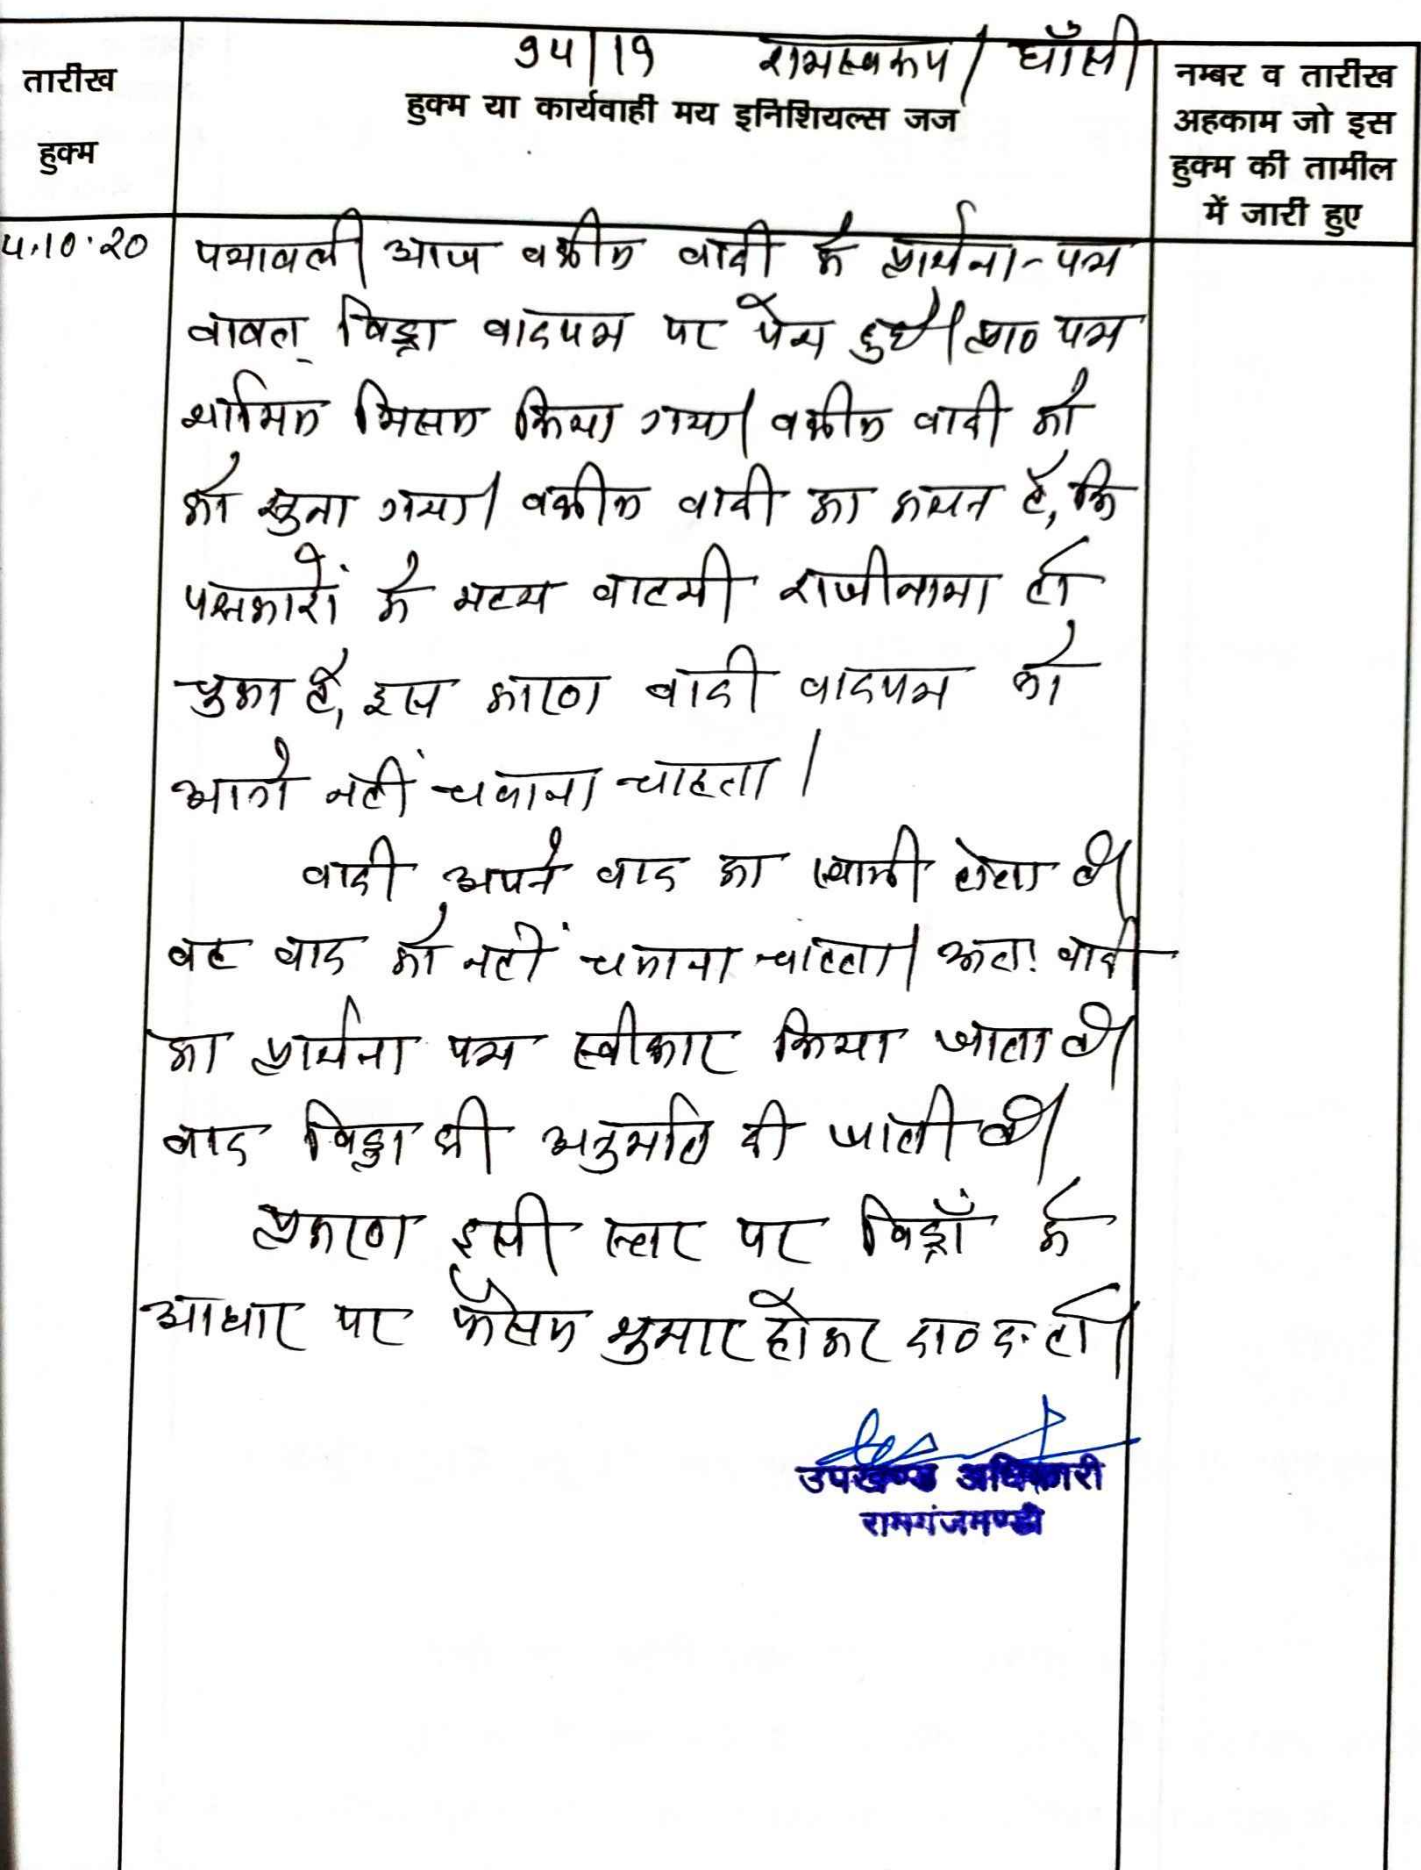 94/19 रामस्वरूप / घाँसी
तारीख
हुक्म
हुक्म या कार्यवाही मय इनिशियल्स जज
नम्बर व तारीख
अहकाम जो इस
हुक्म की तामील
में जारी हुए
10.20
पत्रावली आज वकील वादी के प्रार्थना-पत्र
बाबत् विड्रा वादपत्र पर पेश हुई। प्रा० पत्र
शामिल मिसल किया गया। वकील वादी को
को सुना गया। वकील वादी का कथन है, कि
पक्षकारों के मध्य बाहमी राजीनामा हो
चुका है, इस कारण वादी वादपत्र को
आगे नहीं चलाना चाहता।
वादी अपने वाद का स्वामी होता है।
वह वाद को नहीं चलाना चाहता। अतः वादी
का प्रार्थना पत्र स्वीकार किया जाता है।
वाद विड्रा की अनुमति दी जाती है।
प्रकरण इसी स्तर पर विड्रॉ के
आधार पर फैसल शुमार होकर दा० द. हो।
उपखण्ड अधिकारी
रामगंजमण्डी